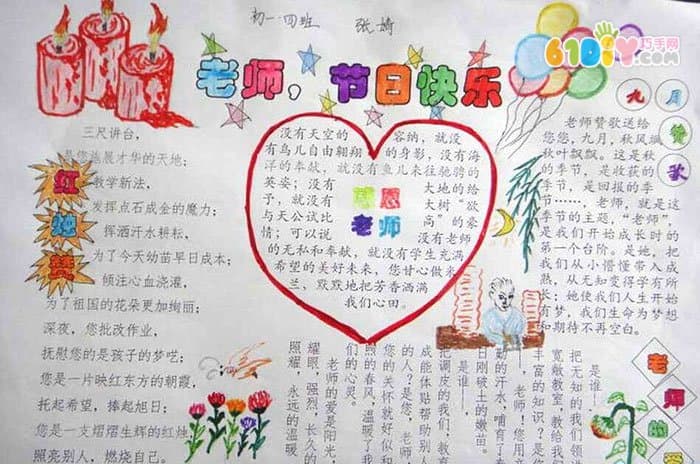 初一四班 张婧
61DIY巧手网
.com
老师，节日快乐
九月赞歌
三尺讲台，
是您施展才华的天地；
教学新法，
发挥点石成金的魔力；
挥洒汗水耕耘，
为了今天幼苗早日成本；
倾注心血浇灌，
为了祖国的花朵更加绚丽；
深夜，您批改作业，
抚慰您的是孩子的梦呓；
您是一片映红东方的朝霞，
托起希望，捧起旭日；
您是一支熠熠生辉的红烛，
照亮别人，燃烧自己。
红烛赞
没有天空的 容纳，就没
有鸟儿自由翱翔 的身影，没有海
洋的奉献，就没有鱼儿来往驰骋的
英姿；没有 大地的给
予，就没有 大树“欲
与天公试比 高”的豪
情；可以说 没有老师
的无私和奉献，就没有学生充满
希望的美好未来，您甘心做米
兰，默默地把芳香洒满
我们心田。
感恩
老师
老师赞歌送给
您，九月，秋风飒
秋叶飘飘。这是秋
的季节，是收获的
季节，是回报的季
节……，老师，就是这
季节的主题，“老师”，
是我们开始成长时的
第一个台阶。是她，把
我们从小懵懂带入成
熟，从无知变得学有所
长；她使我们人生开始
有梦，我们生命为梦想
和期待不再空白。
是谁——
把无知的我们领
宽敞教室，教给我
丰富的知识？是
——老师！您用
勤的汗水，哺育了
日刚破土的嫩苗。
是谁——
把调皮的我们，教育
成能体贴帮助别人
的人？是您，老师
您的关怀就好似和
煦的春风，温暖了我
们的心灵。
老师的爱是阳光，
耀眼，强烈，长久的
照耀，永远的温暖
老师的爱